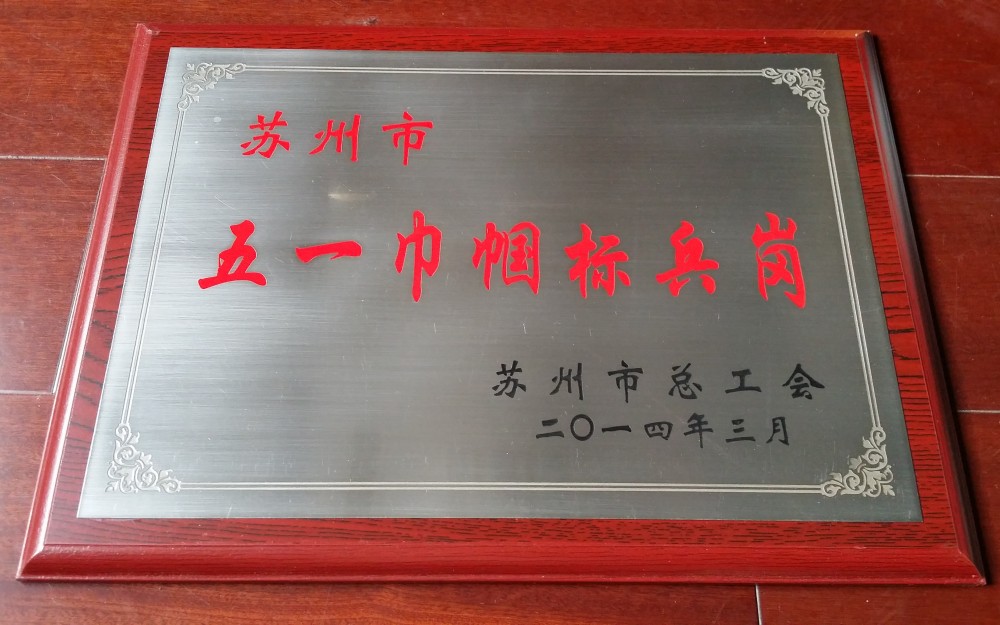 苏州市
五一巾帼标兵岗
苏州市总工会
二〇一四年三月